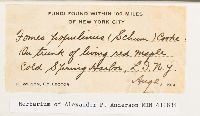 FUNGI FOUND WITHIN 100 MILES
OF NEW YORK CITY
Fomes populinus (Schum.) Cooke
On trunk of living red maple
Cold Spring Harbor, L.I. N.Y.
Aug.
COLLECTOR
Herbarium of Alexander P. Anderson MIN